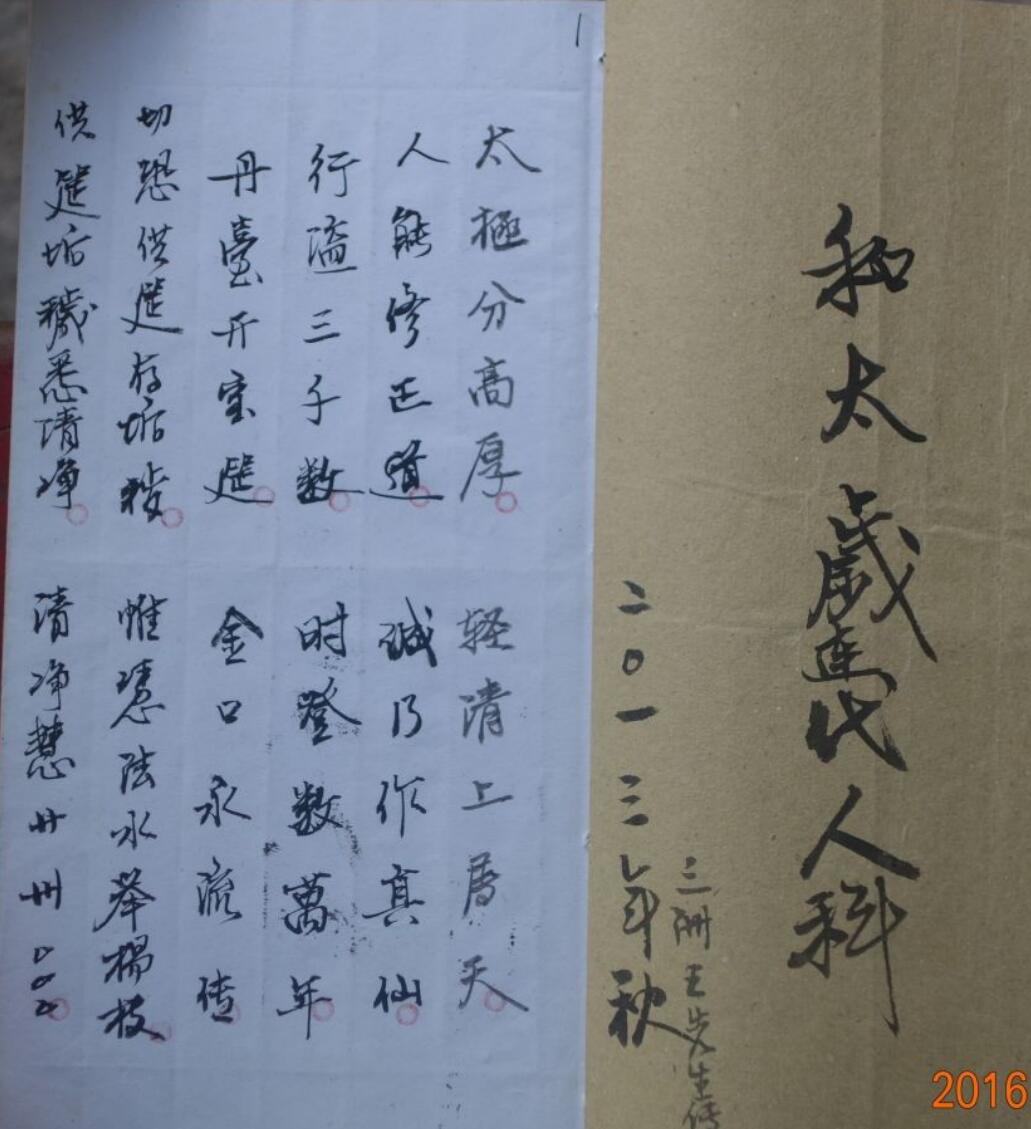 和太歲代人科
三洲王先生传
二0一三年秋
1
太極分高厚 轻清上属天
人能修正道 诚乃作真仙
行溢三千数 时登数萬年
丹臺开宝筵 金口永流传
切恐供筵有垢秽 惟凭法水举楊枝
供筵垢穢悉清净 清净慧
2016